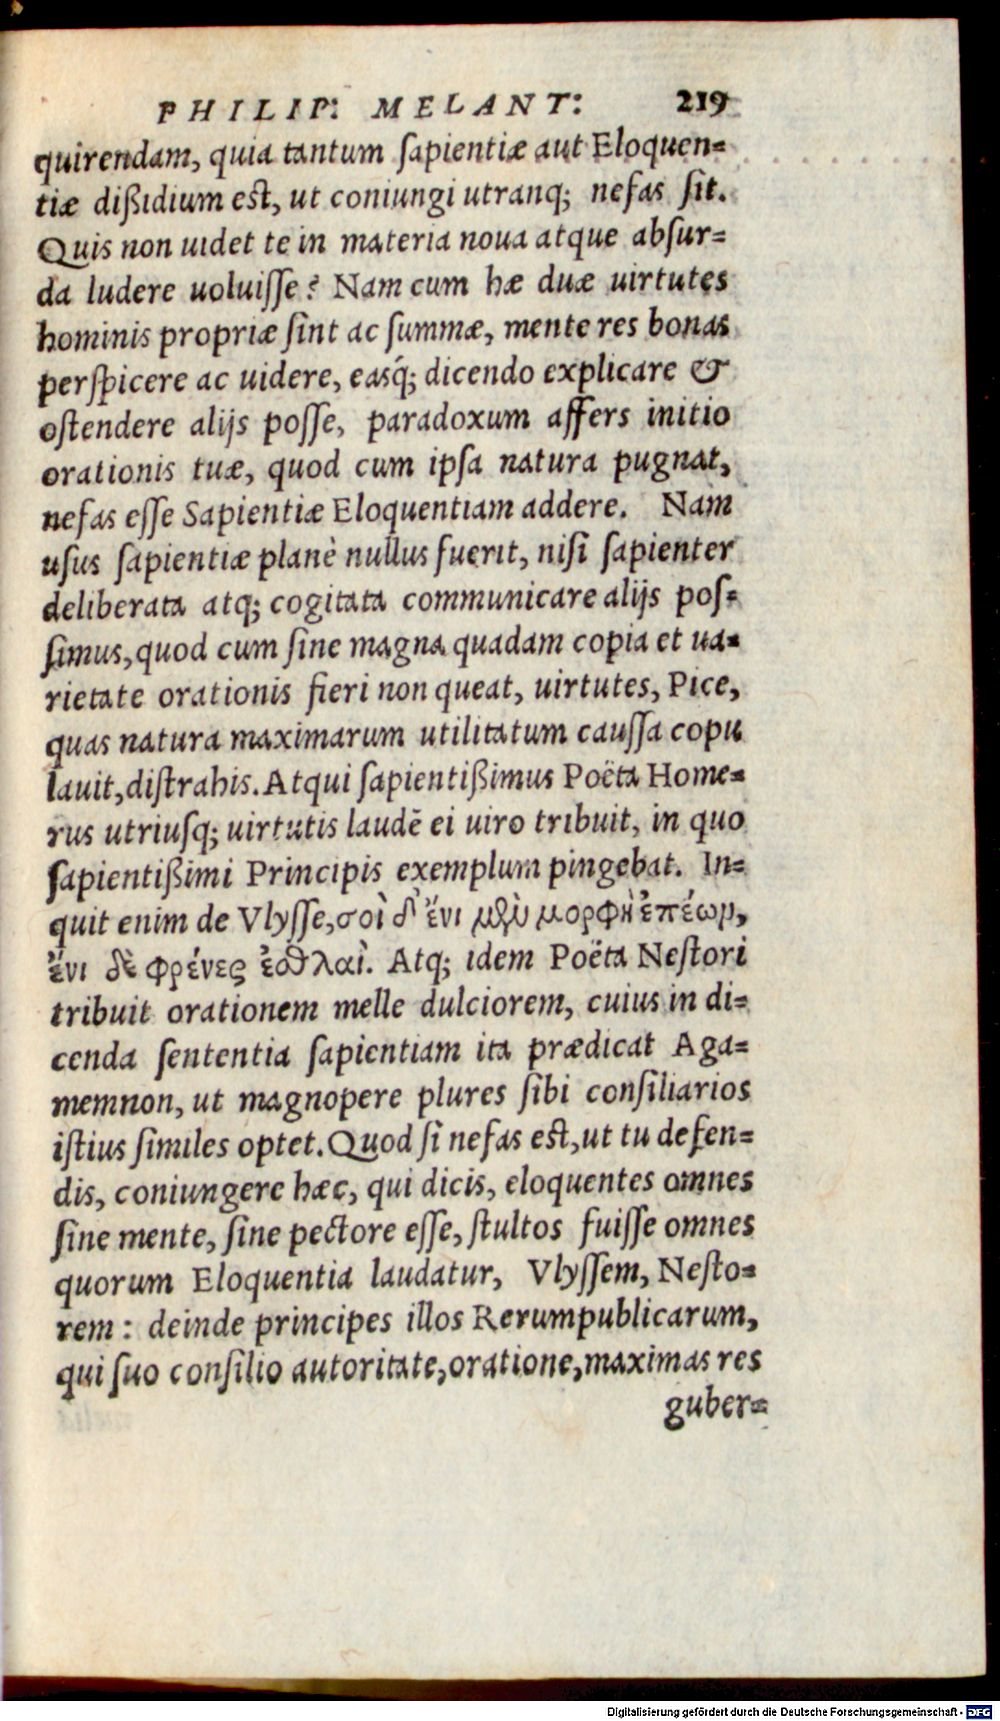 PHILIP: MELANT: 219
quirendam, quia tantum sapientiæ aut Eloquen=
tiæ dißidium est, ut coniungi utranq; nefas sit.
Quis non uidet te in materia noua atque absur=
da ludere uoluisse? Nam cum hæ duæ uirtutes
hominis propriæ sint ac summæ, mente res bonas
perspicere ac uidere, easq́; dicendo explicare &
ostendere alijs posse, paradoxum affers initio
orationis tuæ, quod cum ipsa natura pugnat,
nefas esse Sapientiæ Eloquentiam addere. Nam
usus sapientiæ planè nullus fuerit, nisi sapienter
deliberata atq; cogitata communicare alijs pos=
simus, quod cum sine magna quadam copia et ua=
rietate orationis fieri non queat, uirtutes, Pice,
quas natura maximarum utilitatum caussa copu
lauit, distrahis. Atqui sapientißimus Poëta Home=
rus utriusq; uirtutis laudē ei uiro tribuit, in quo
sapientißimi Principis exemplum pingebat. In=
quit enim de Vlysse, σοὶ δ' ἔνι μὲν μορφὴ ἐπέωμ,
ἔνι δὲ φρένες ἐσθλαὶ. Atq; idem Poëta Nestori
tribuit orationem melle dulciorem, cuius in di=
cenda sententia sapientiam ita prædicat Aga=
memnon, ut magnopere plures sibi consiliarios
istius similes optet. Quod si nefas est, ut tu defen=
dis, coniungere hæc, qui dicis, eloquentes omnes
sine mente, sine pectore esse, stultos fuisse omnes
quorum Eloquentia laudatur, Vlyssem, Nesto=
rem: deinde principes illos Rerumpublicarum,
qui suo consilio autoritate, oratione, maximas res
guber=
Digitalisierung gefördert durch die Deutsche Forschungsgemeinschaft - DFG